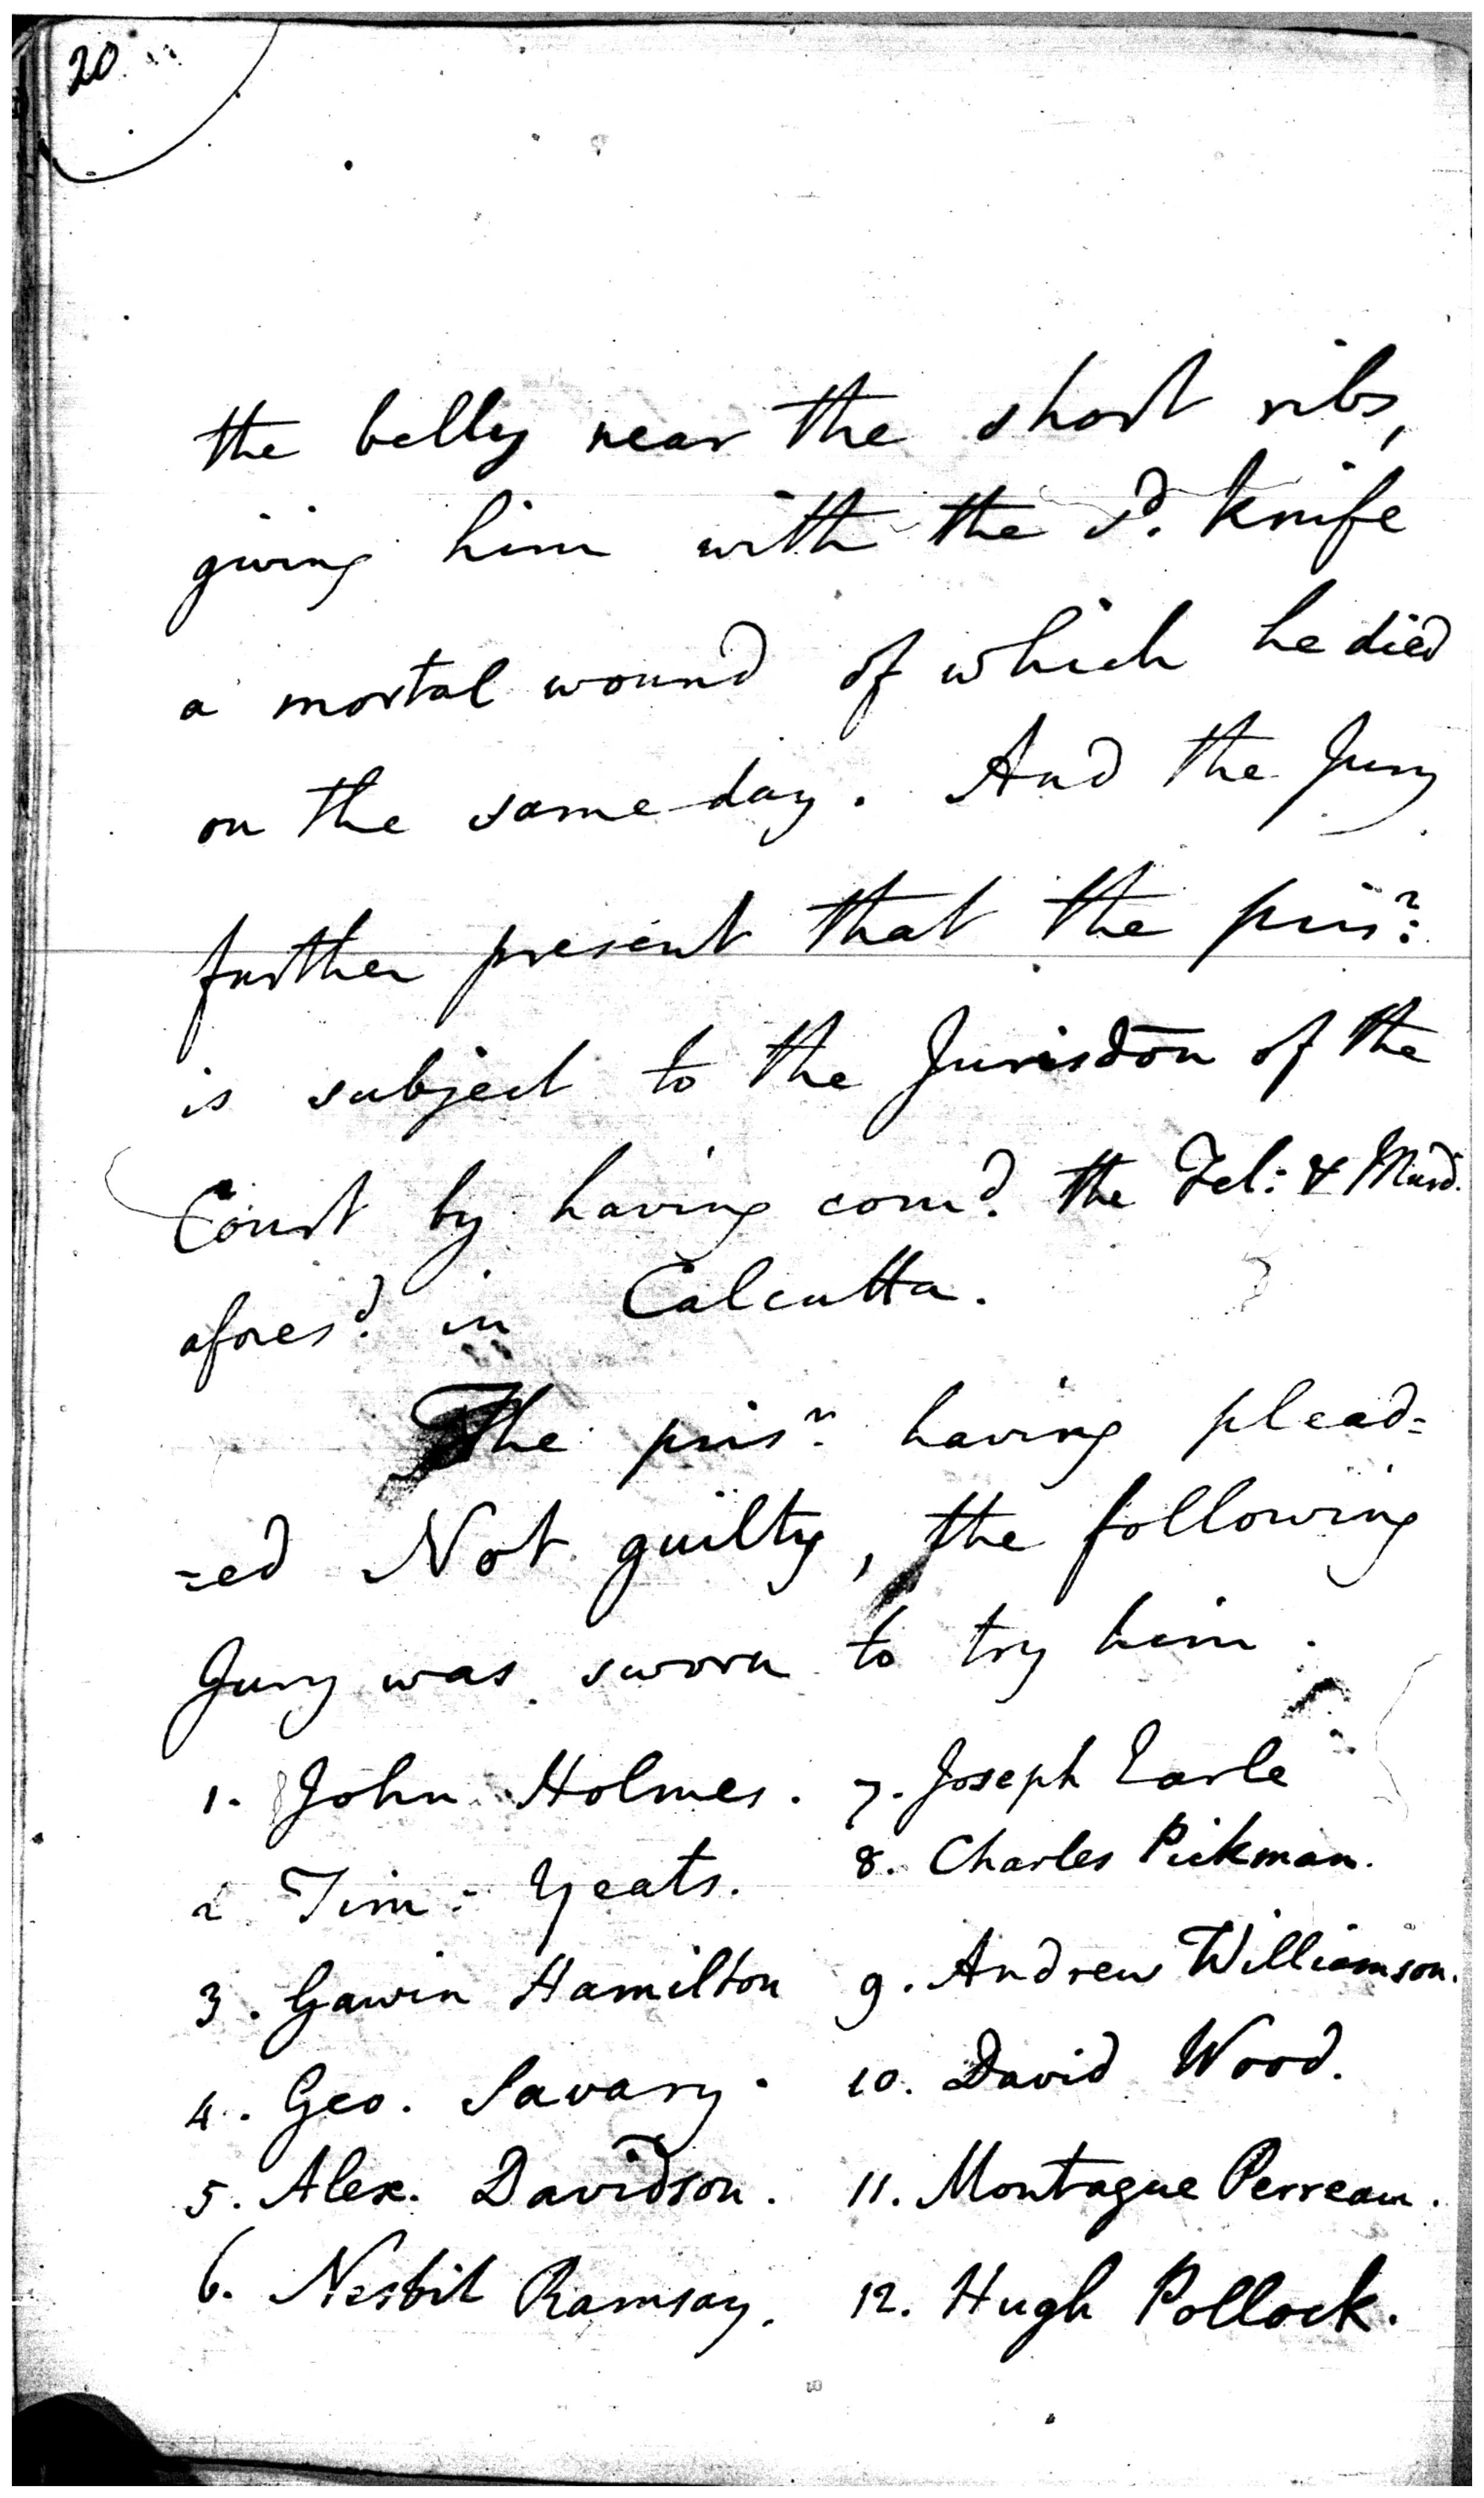 20
the belly near the short ribs,
giving him with the sd. knife
a mortal wound of which he died
on the same day. And the Jury
further present that the prisr:
is subject to the Jurisdōn of the
Court by having comd. the Fel: & Murd.
afores.d in Calcutta.
The prisr. having plead=
=ed Not guilty, the following
Jury was sworn to try him.
1. John Holmes. 7. Joseph Earle
2 Tim: Yeats. 8. Charles Pickman.
3. Gawin Hamilton 9. Andrew Williamson.
4. Geo. Savary. 10. David Wood.
5. Alex. Davidson. 11. Montague Perreau.
6. Nesbit Ramsay. 12. Hugh Pollock.